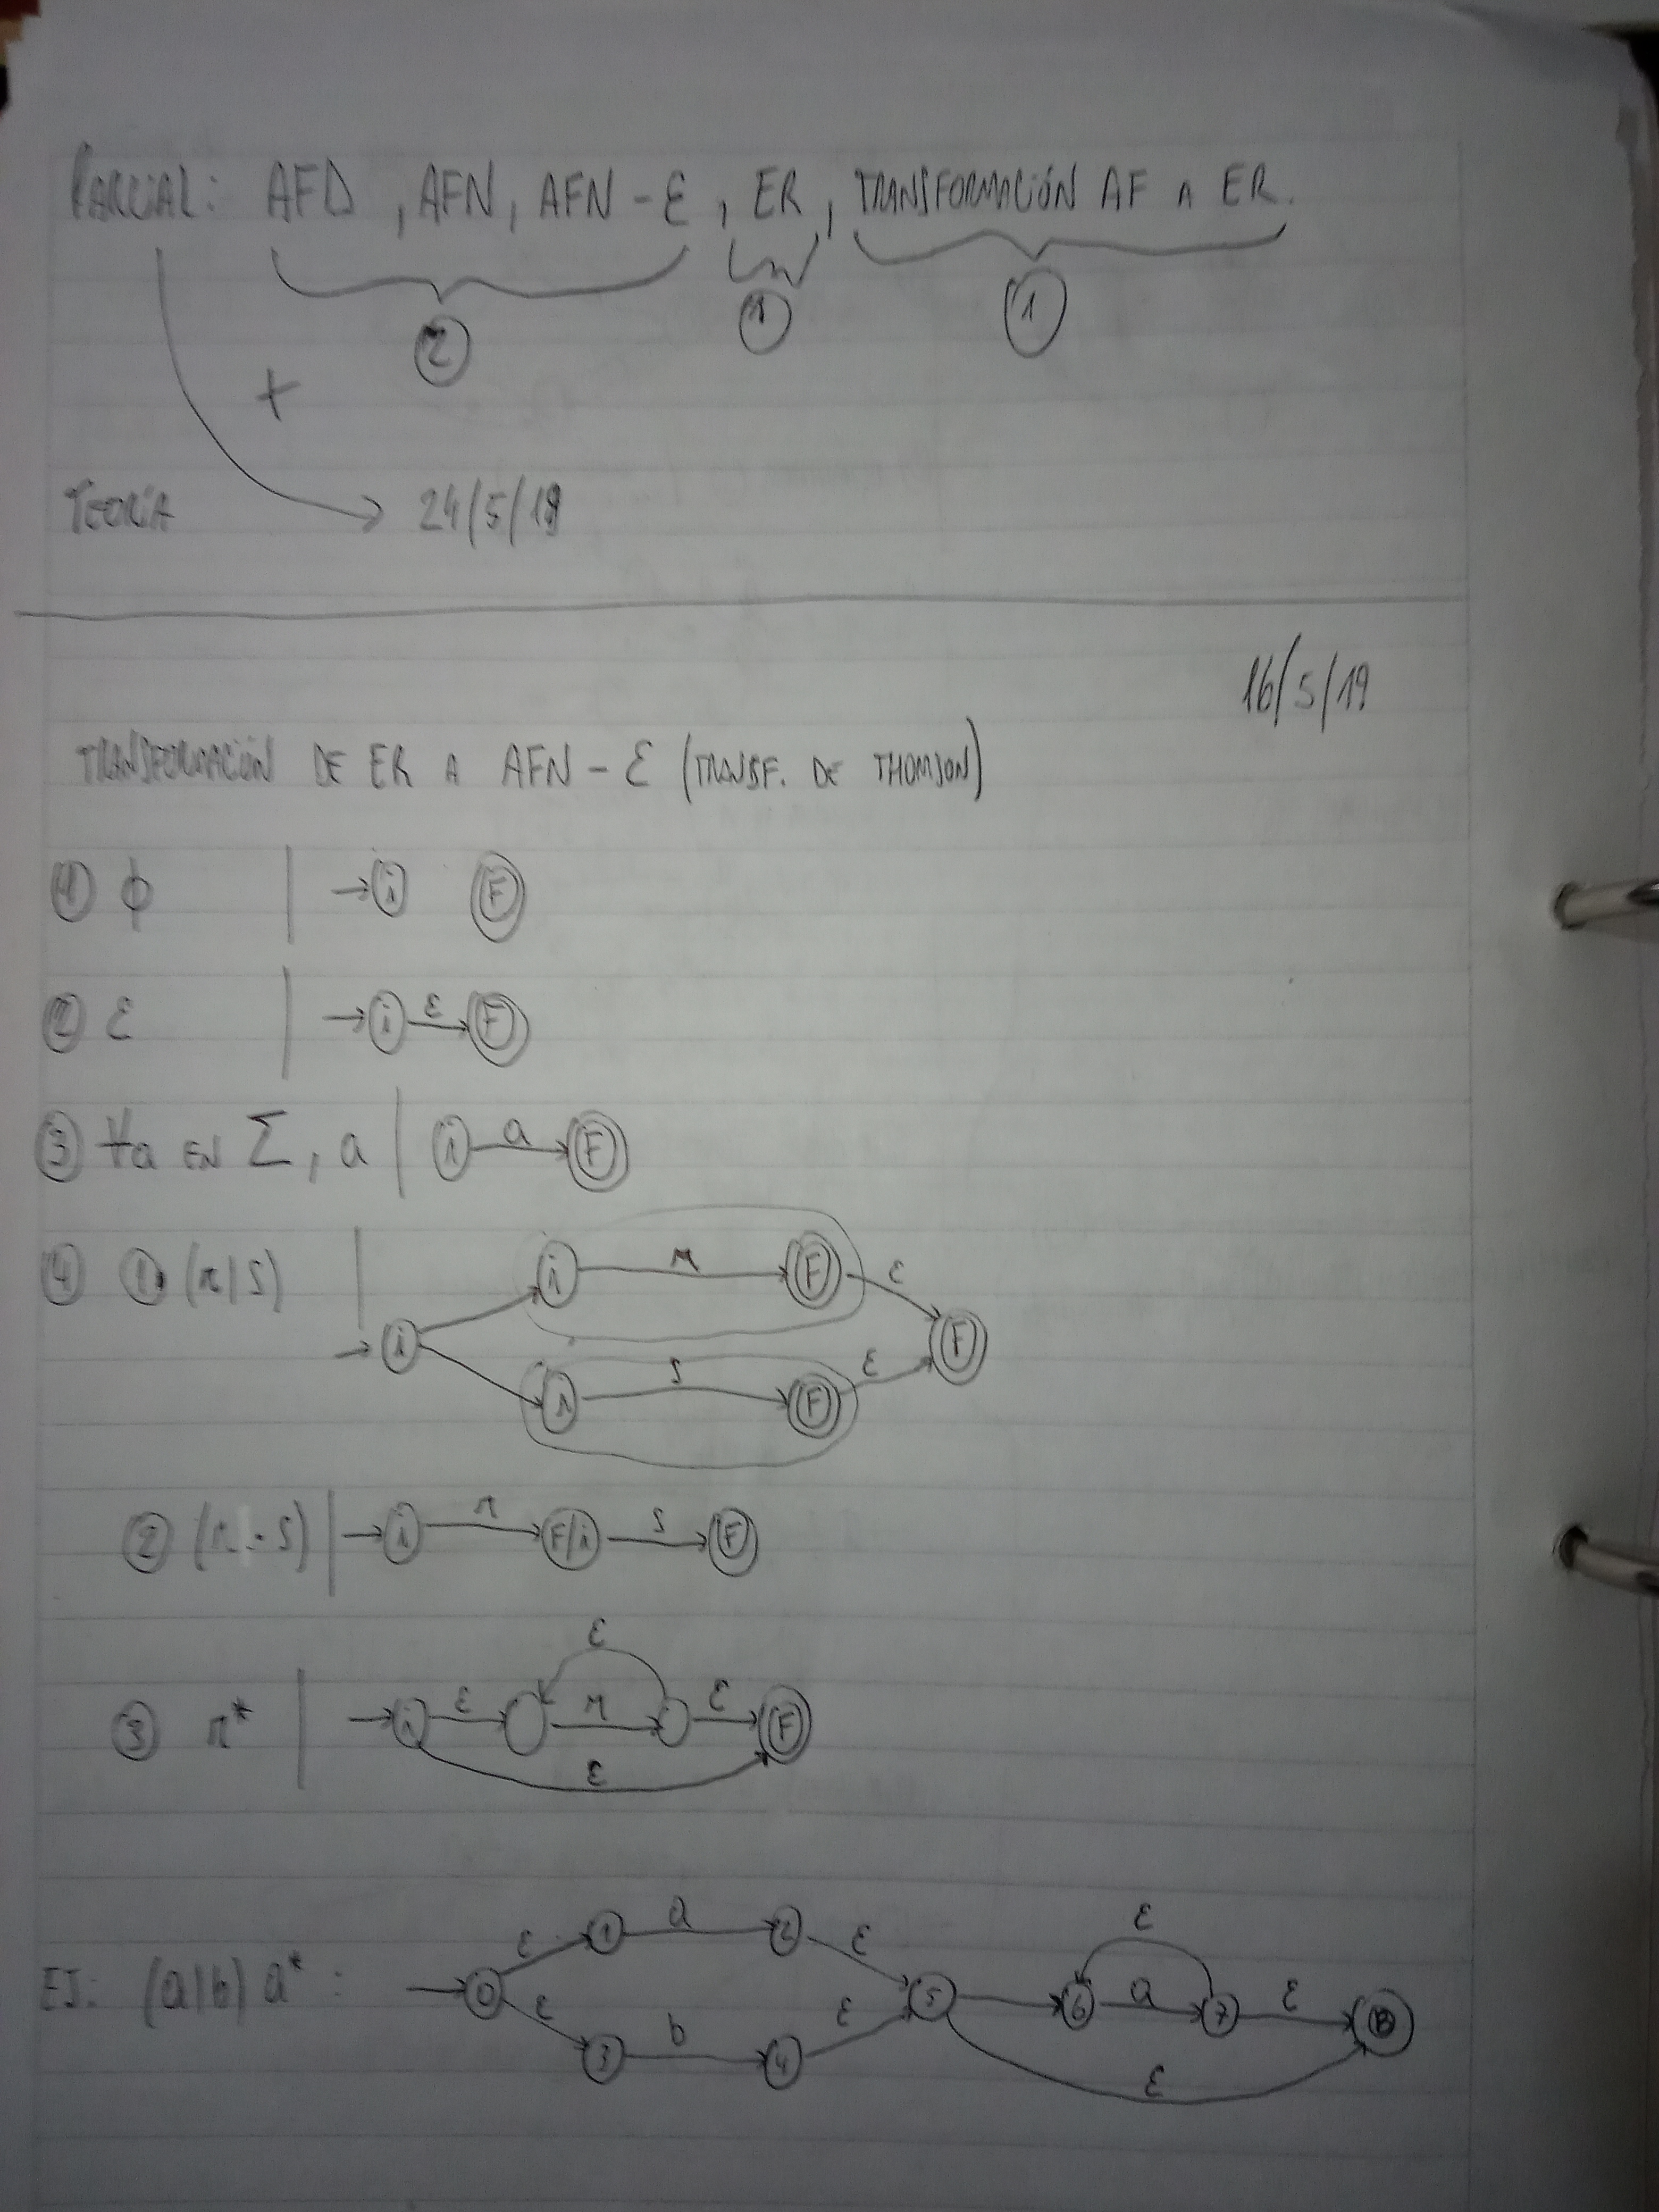 PARCIAL: AFD, AFN, AFN-ε, ER, TRANSFORMACIÓN AF A ER.
2 1 1
+
TEORÍA → 24/5/19
16/5/19
TRANSFORMACIÓN DE ER A AFN-ε (TRANSF. DE THOMSON)
① ϕ | → i F
② ε | → i ε F
③ ∀a EN Σ, a | i a F
④ ① (r|s) | → i i r F ε i s F ε F
② (r·s) | → i r F/i s F
③ r* | → i ε r ε ε F ε
EJ: (a|b) a* : → 0 ε 1 a 2 ε ε 3 b 4 ε 5 6 a 7 ε ε 8 ε